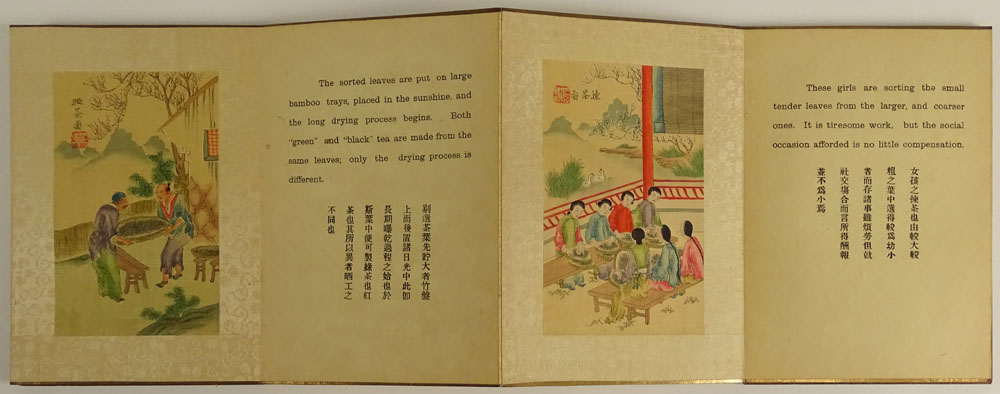 The sorted leaves are put on large
bamboo trays, placed in the sunshine, and
the long drying process begins. Both
"green" and "black" tea are made from the
same leaves; only the drying process is
different.
剔選茶葉先貯大者竹盤
上而後置諸日光中此卽
長期曝乾過程之始也於
斯葉中便可製綠茶也紅
茶也其所以異者晒工之
不同也
揀茶啚
These girls are sorting the small
tender leaves from the larger, and coarser
ones. It is tiresome work, but the social
occasion afforded is no little compensation.
女孩之揀茶也由較大較
粗之葉中選得較爲幼小
者而存諸事雖煩勞但就
社交塲合而言所得酬報
不爲小焉